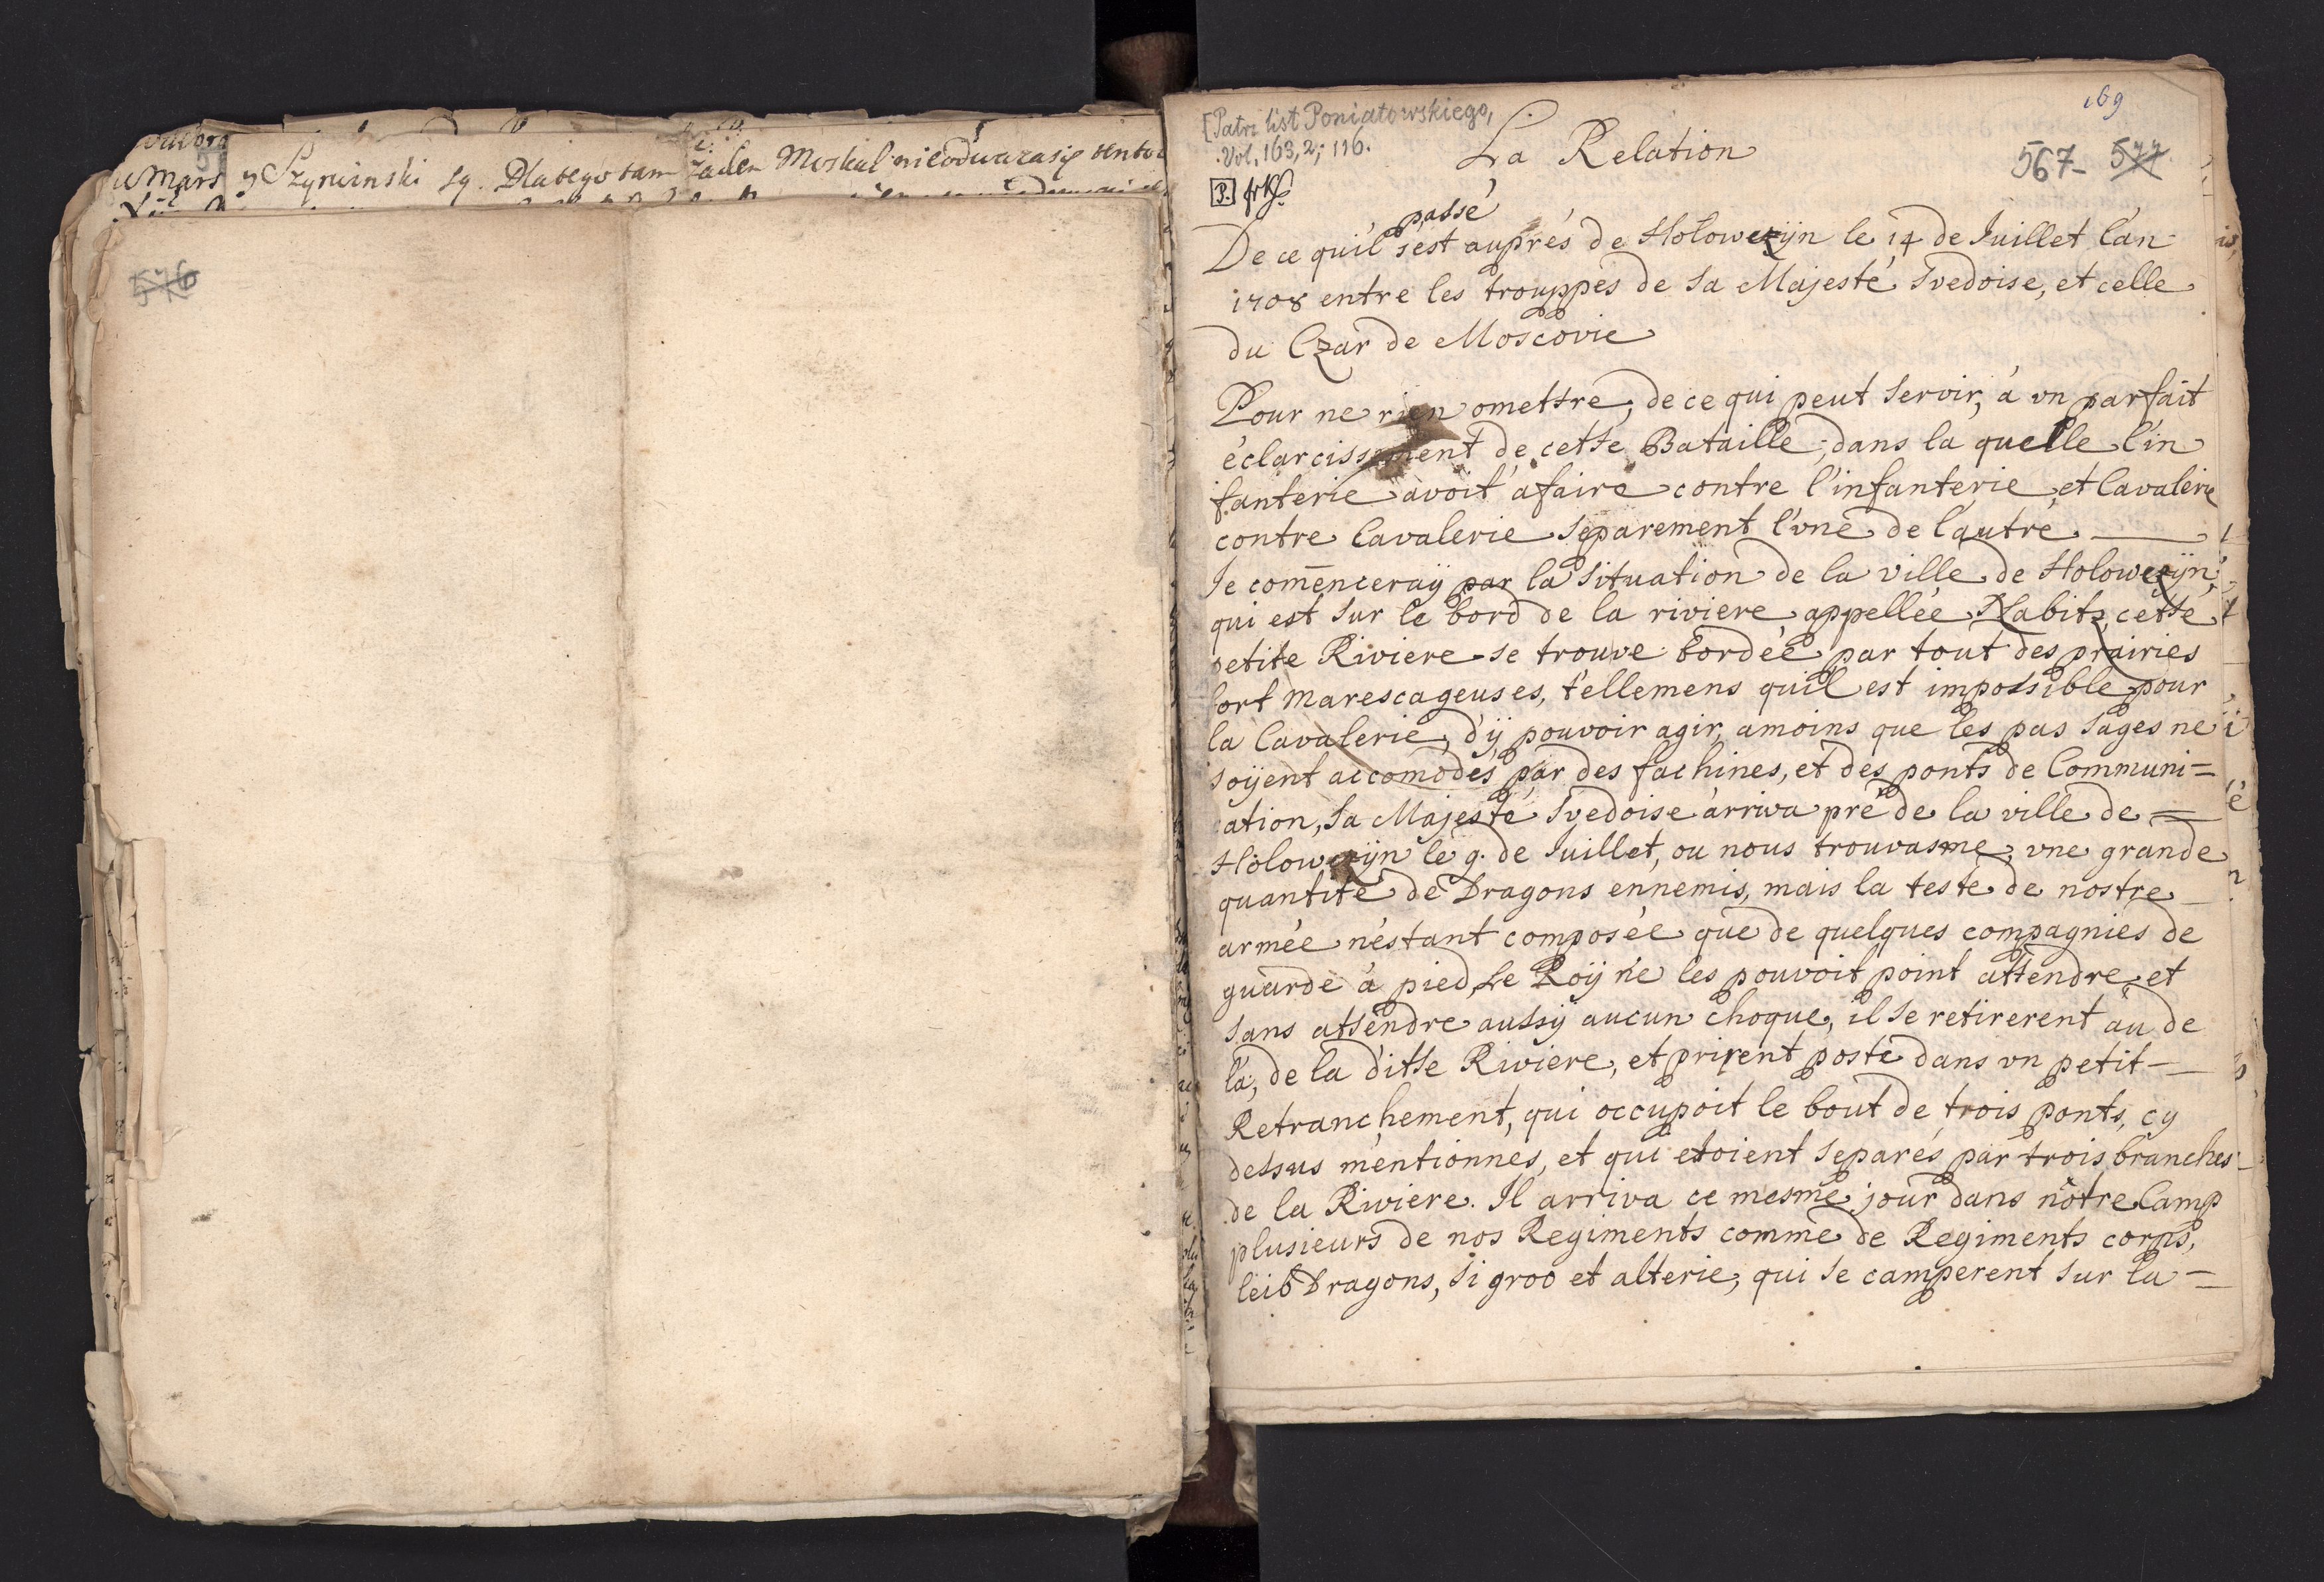 y Szyrwinski sg. Dlatego tam żaden Moskal nieodwarasię
576
[Patrz list Poniatowskiego,
Vol, 163, 2; 116.
169
567- 577
La Relation
passé
De ce qu'il s'est auprés de Holowczÿn le 14 de Juillet l'an
1708 entre les trouppes de sa Majesté Svedoise, et celle
du Czar de Moscovie
Pour ne rien omettre, de ce qui peut servoir, à vn parfait
éclarcissement de cette Bataille, dans la quelle l'in
fanterie avoit afaire contre l'infanterie et Cavalerie
contre Cavalerie separement l'vne de l'autre
Je com̄enceraÿ par la situation de la ville de Holowczÿn,
qui est sur le bord de la riviere appellée Nabitz, cette
petite Riviere se trouve bordée par tout des prairies
fort marescageuses, tellemens quil est impossible pour
la Cavalerie, d'ÿ pouvoir agir, amoins que les pas sages ne
soÿent accomodés par des fachines, et des ponts de Communi=
cation, Sa Majesté Svedoise arriva pré de la ville de =
Holowczÿn le 9. de Juillet, ou nous trouvasme, vne grande
quantité de Dragons ennemis, mais la teste de nostre
armée n'estant composée que de quelques compagnies de
guarde à pied, Le Roÿ ne les pouvoit point attendre, et
sans attendre aussÿ aucun choque, il se retirerent au de
là, de la ditte Riviere, et prirent poste dans vn petit
Retranchement, qui occupoit le bout de trois ponts, cy
dessus mentionnes, et qui etoient separés par trois branches
de la Riviere. Il arriva ce mesme jour dans nôtre Camp
plusieurs de nos Regiments comme de Regiments corps,
leib Dragons, si groo et alterie, qui se camperent sur la =